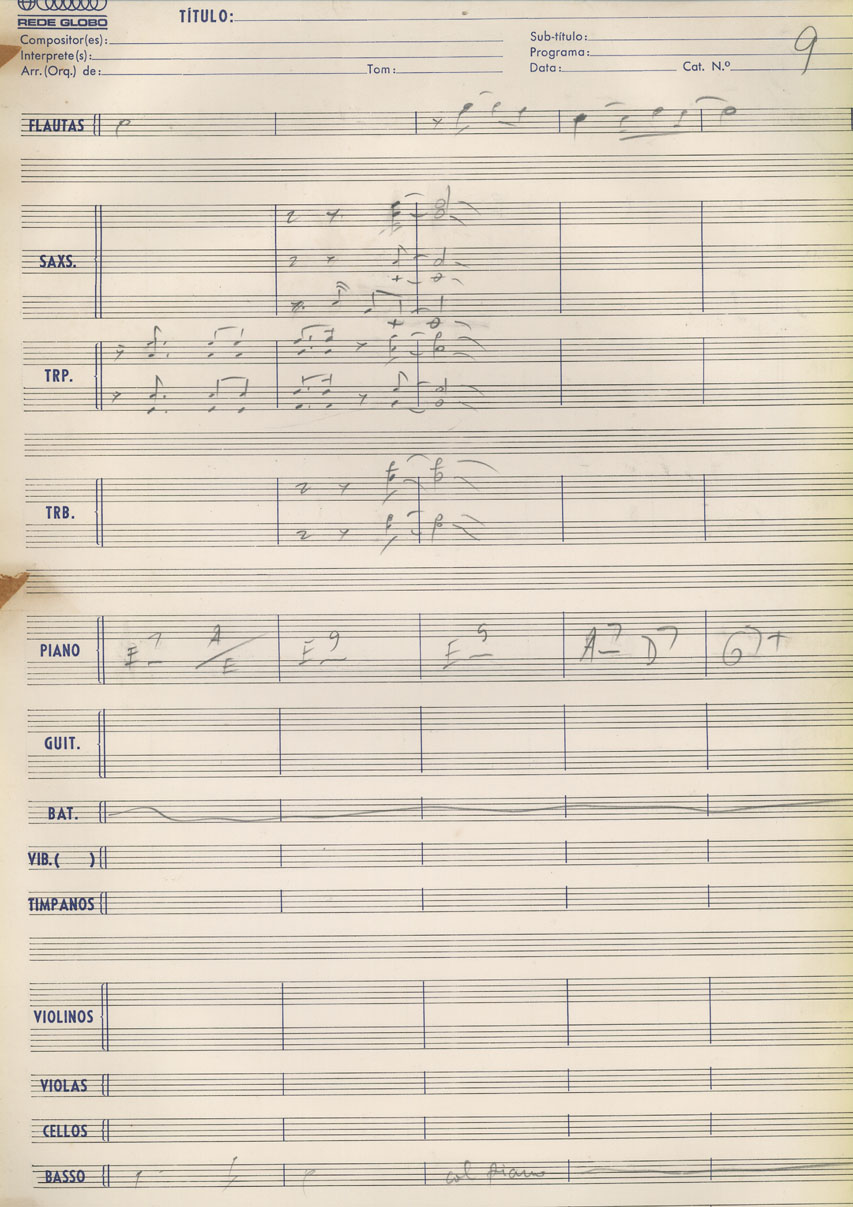 REDE GLOBO
TÍTULO:
Compositor(es):
Interprete(s):
Arr. (Orq.) de: Tom:
Sub-título:
Programa:
Data: Cat. N.º
9
FLAUTAS
SAXS.
TRP.
TRB.
PIANO E7 A/E E9 E9 A-7 D7 G7+
GUIT.
BAT.
VIB.( )
TIMPANOS
VIOLINOS
VIOLAS
CELLOS
BASSO col piano